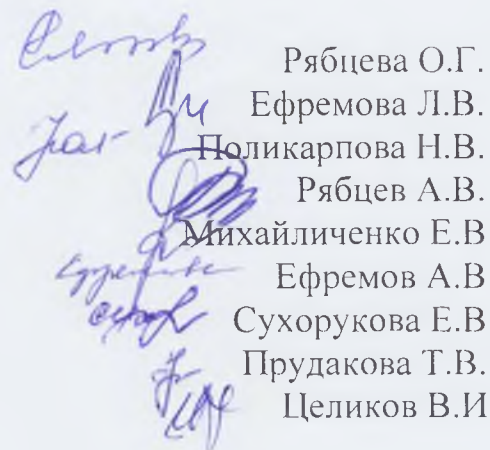 Рябцева О.Г.
Ефремова Л.В.
Поликарпова Н.В.
Рябцев А.В.
Михайличенко Е.В
Ефремов А.В
Сухорукова Е.В
Прудакова Т.В.
Целиков В.И